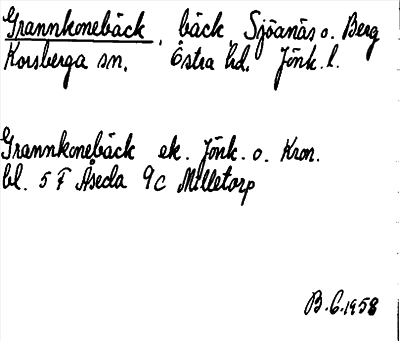 Grannkonebäck, bäck, Sjöanäs o. Berg
Korsberga sn. Östra hd. Jönk. l.
Grannkonebäck ek. Jönk. o. Kron.
bl. 5 F Åseda 9c Milletorp
B.G.1958